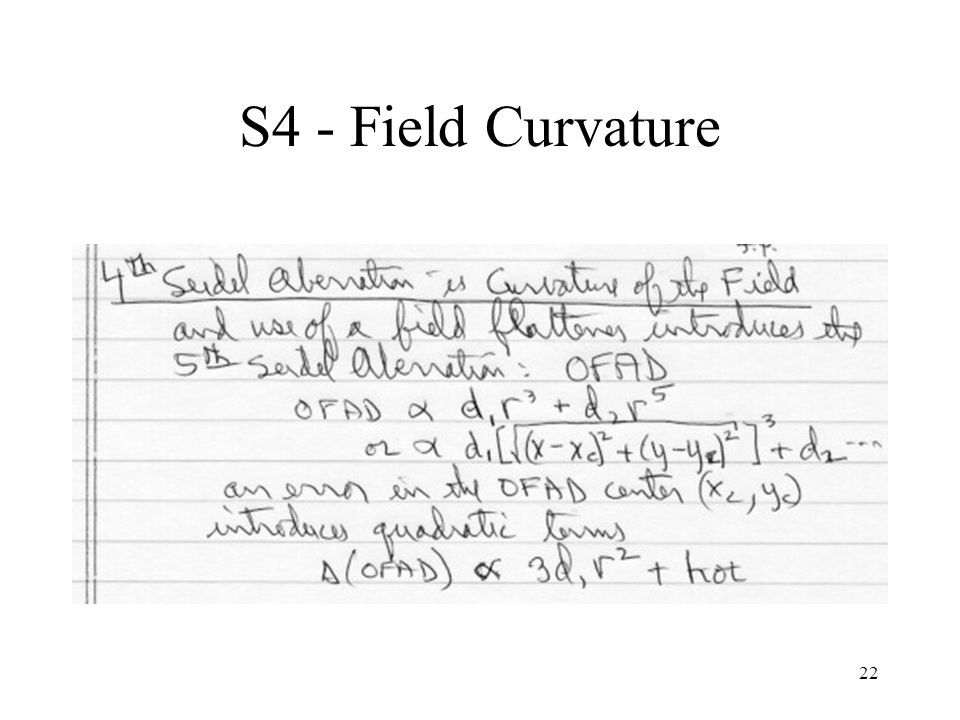 S4 - Field Curvature
4th Seidel Aberration is Curvature of the Field
and use of a field flattener introduces the
5th Seidel Aberration: OFAD
OFAD ∝ d₁r³ + d₂r⁵
or ∝ d₁[√(x-x_c)² + (y-y_c)²]³ + d₂ ...
an error in the OFAD center (x_c, y_c)
introduces quadratic terms
Δ(OFAD) ∝ 3d₁r² + hot
22